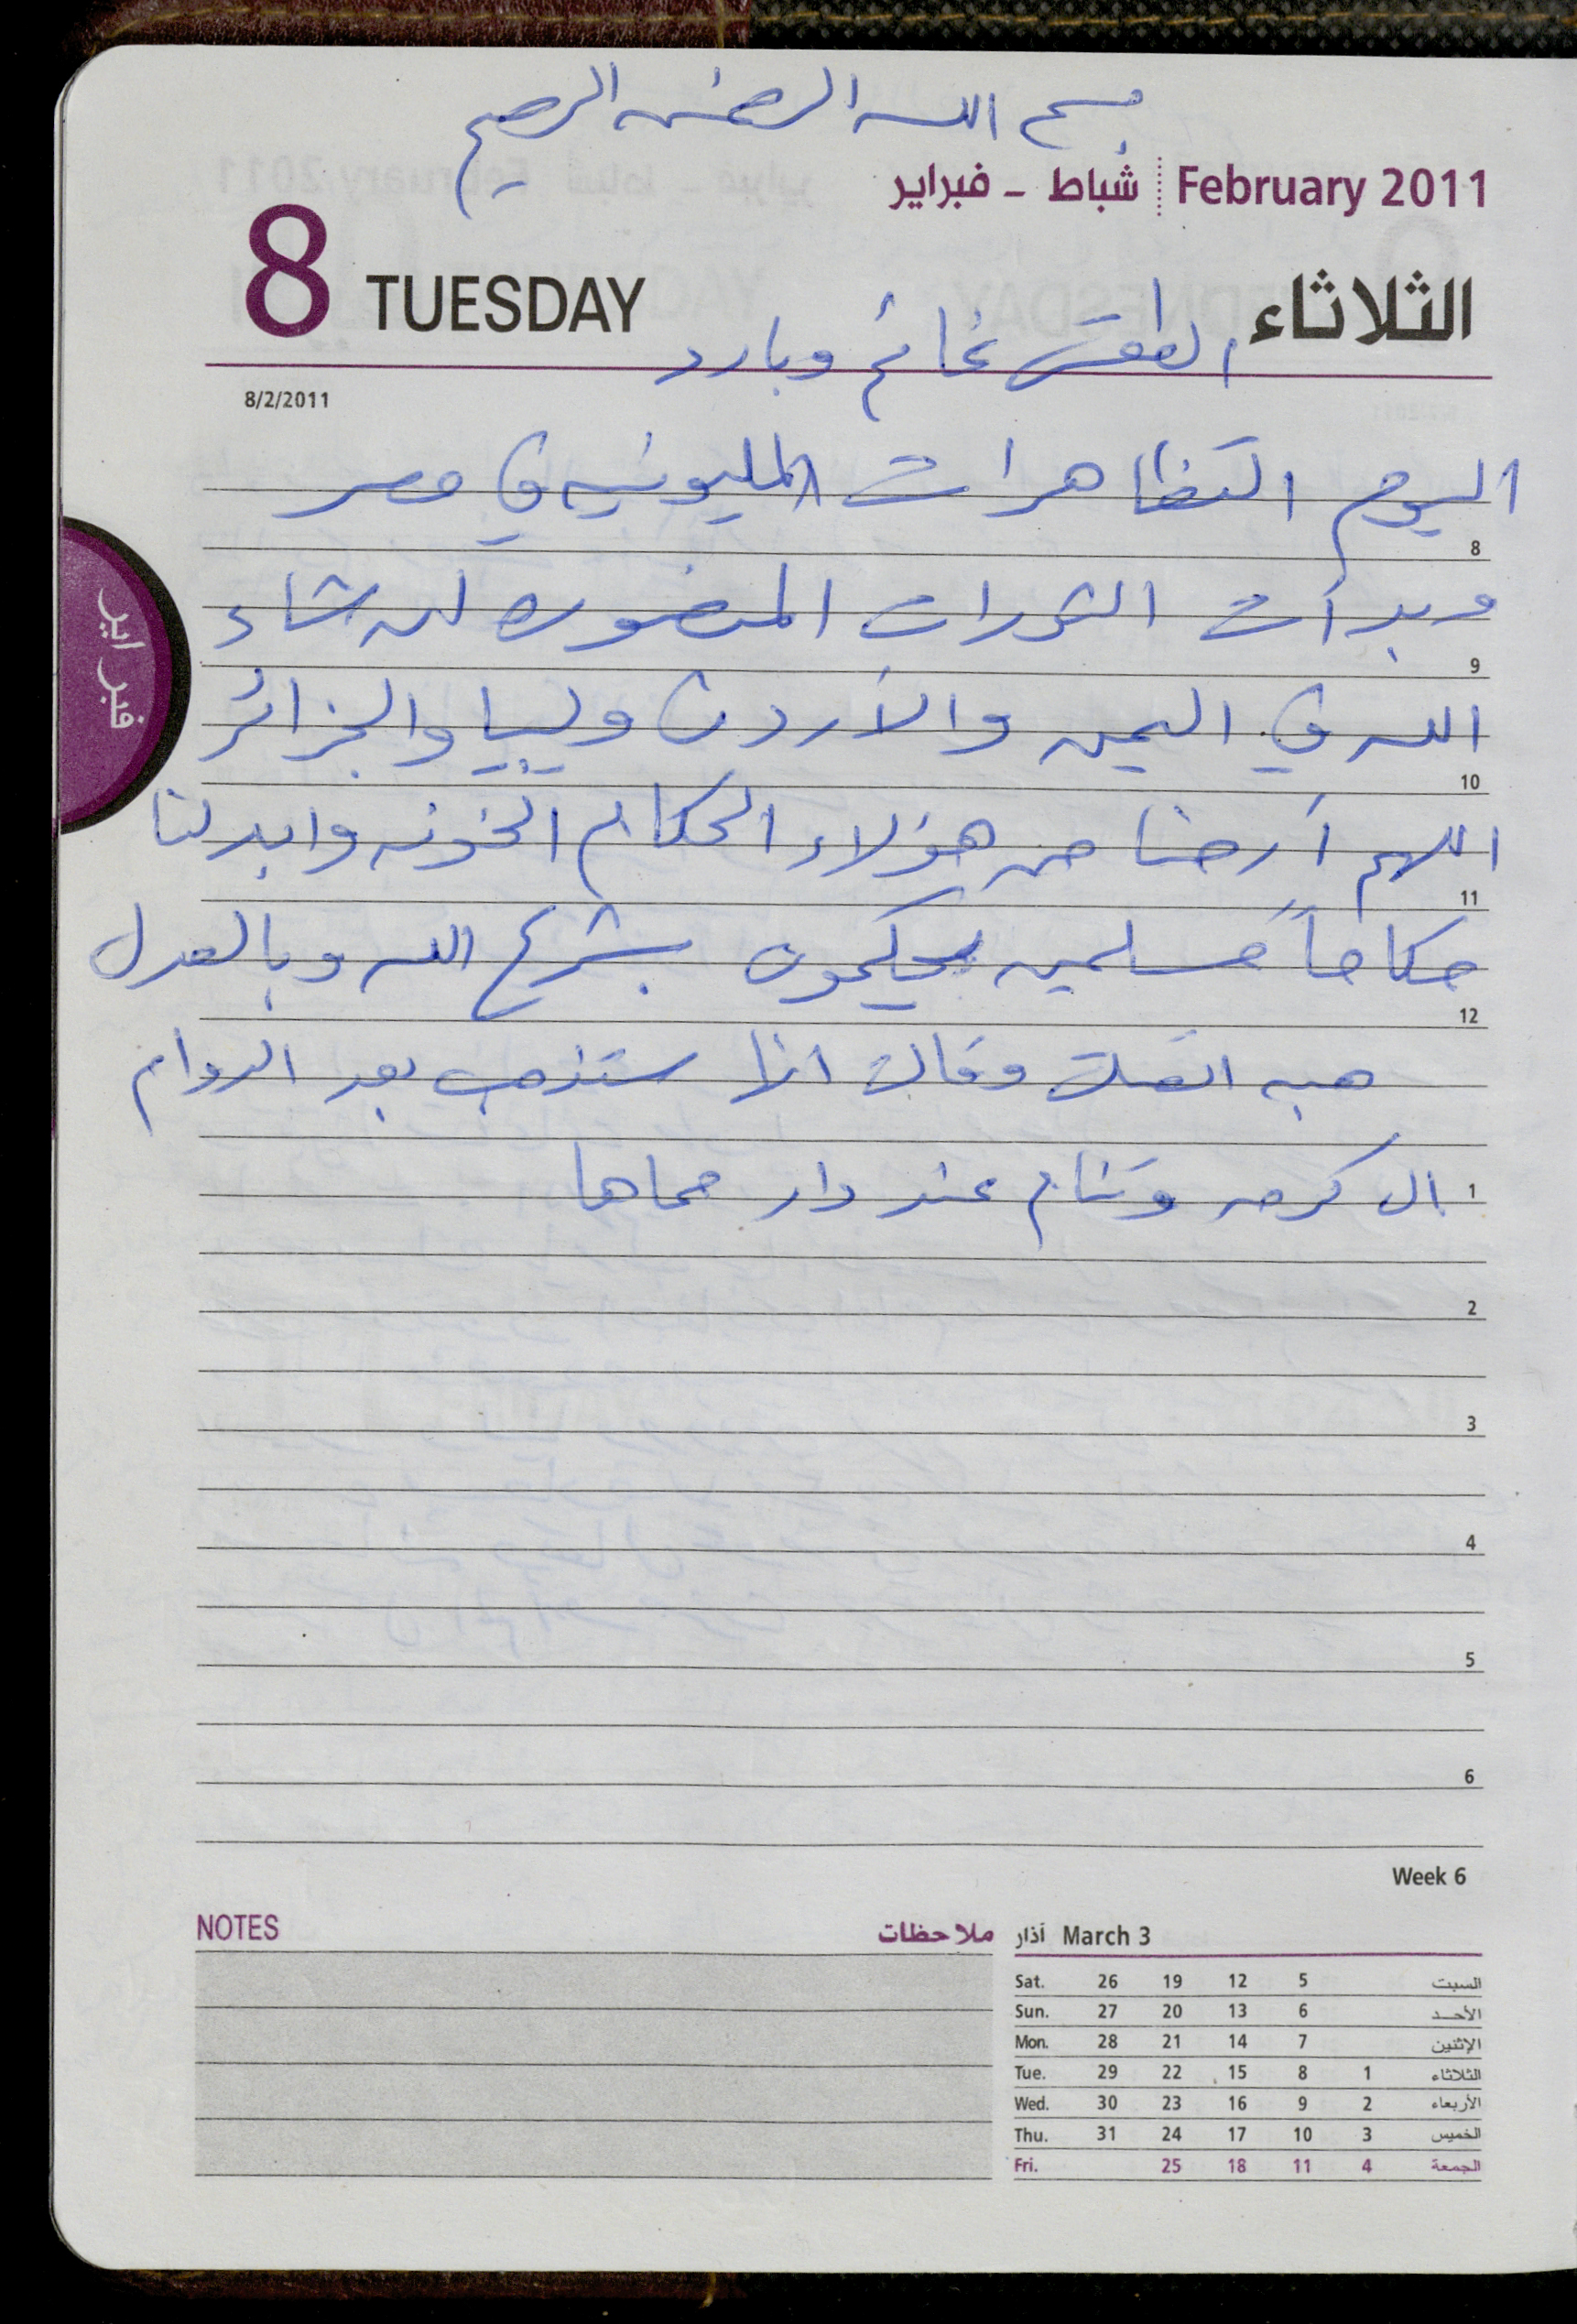 بسم الله الرحمن الرحيم
February 2011 شباط - فبراير
8 TUESDAY الثلاثاء
الطقس غائم وبارد
8/2/2011
اليوم التظاهرات المليونيه في مصر
8
وبدأت الثورات المنصوره ان شاء
9
فبراير
الله في اليمن والأردن وليبيا والجزائر
10
اللهم أرحنا من هؤلاء الحكام الخونه وابدلنا
11
حكاماً مسلمين يحكمون بشرع الله وبالعدل
12
هبه اتصلت وقالت انها ستذهب بعد الدوام
1 الى كرمه وتنام عند دار حماها
2
3
4
5
6
Week 6
NOTES ملاحظات
آذار March 3
Sat. 26 19 12 5 السبت
Sun. 27 20 13 6 الأحد
Mon. 28 21 14 7 الإثنين
Tue. 29 22 15 8 1 الثلاثاء
Wed. 30 23 16 9 2 الأربعاء
Thu. 31 24 17 10 3 الخميس
Fri. 25 18 11 4 الجمعة